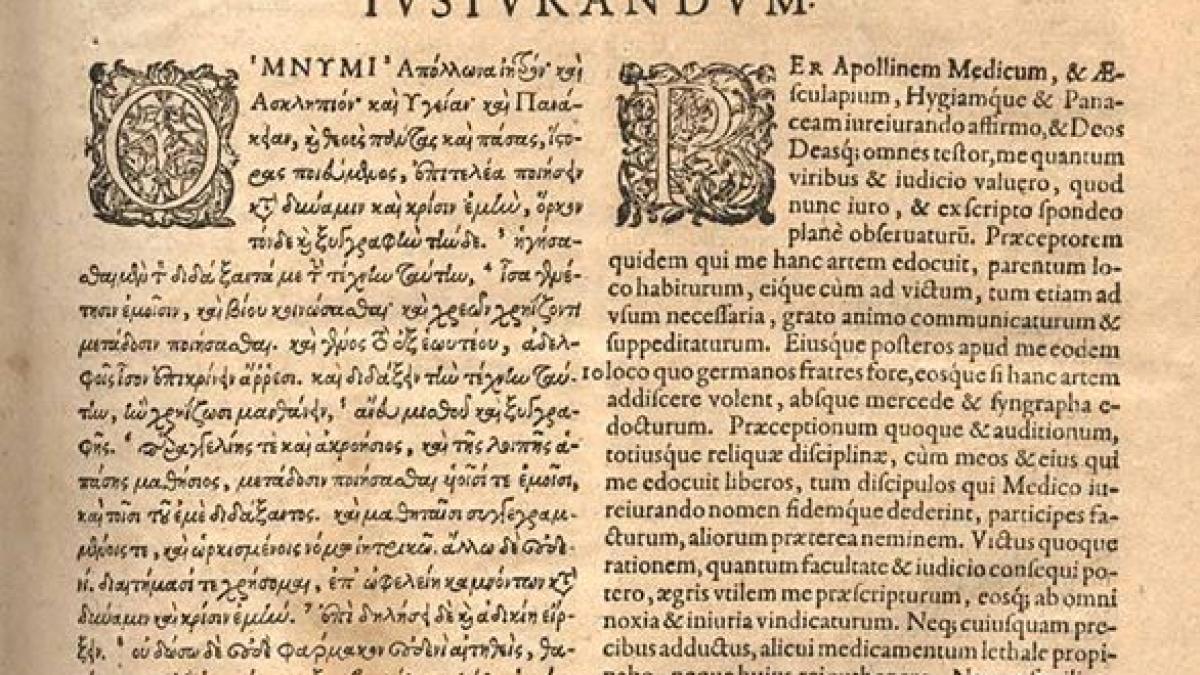 IVSIVRANDVM.
ΟΜΝΥΜΙ Ἀπόλλωνα ἰητρὸν καὶ
Ἀσκληπιὸν καὶ Ὑγείαν καὶ Πανά-
κειαν, καὶ θεοὺς πάντας καὶ πάσας, ἵστο-
ρας ποιεύμενος, ἐπιτελέα ποιήσειν
κατὰ δύναμιν καὶ κρίσιν ἐμὴν, ὅρκον
τόνδε καὶ ξυγγραφὴν τήνδε. ³ ἡγήσα-
σθαι μὲν τὸν διδάξαντά με τὴν τέχνην ταύτην, ⁴ ἶσα γενέ-
τῃσιν ἐμοῖσιν, καὶ βίου κοινώσασθαι καὶ χρεῶν χρηΐζοντι
μετάδοσιν ποιήσασθαι. καὶ γένος τὸ ἐξ ἑωυτέου, ἀδελ-
φοῖς ἶσον ἐπικρινέειν ἄρρεσι. καὶ διδάξειν τὴν τέχνην ταύ-
την, ἢν χρηΐζωσι μανθάνειν, ⁵ ἄνευ μισθοῦ καὶ ξυγγρα-
φῆς. ⁶ παραγγελίης τε καὶ ἀκροήσιος, καὶ τῆς λοιπῆς ἁ-
πάσης μαθήσιος, μετάδοσιν ποιήσασθαι υἱοῖσί τε ἐμοῖσι,
καὶ τοῖσι τοῦ ἐμὲ διδάξαντος. καὶ μαθηταῖσι συγγεγραμ-
μένοις τε, καὶ ὡρκισμένοις νόμῳ ἰητρικῷ. ἄλλῳ δὲ οὐδε-
νί. διαιτήμασί τε χρήσομαι, ἐπ' ὠφελείῃ καμνόντων κατὰ
δύναμιν καὶ κρίσιν ἐμήν. ⁷ ἐπὶ δηλήσει δὲ καὶ ἀδικίῃ εἴρ-
ξειν. ⁸ οὐ δώσω δὲ οὐδὲ φάρμακον οὐδενὶ αἰτηθεὶς, θα-
PER Apollinem Medicum, & Æ-
sculapium, Hygiamq́ue & Pana-
ceam iureiurando affirmo, & Deos
Deasq; omnes testor, me quantum
viribus & iudicio valuero, quod
nunc iuro, & ex scripto spondeo
planè obseruaturū. Præceptorem
quidem qui me hanc artem edocuit, parentum lo-
co habiturum, eique cùm ad victum, tum etiam ad
vsum necessaria, grato animo communicaturum &
suppeditaturum. Eiusque posteros apud me eodem
10 loco quo germanos fratres fore, eosque si hanc artem
addiscere volent, absque mercede & syngrapha e-
docturum. Præceptionum quoque & auditionum,
totiusque reliquæ disciplinæ, cùm meos & eius qui
me edocuit liberos, tum discipulos qui Medico iu-
reiurando nomen fidemque dederint, participes fa-
cturum, aliorum præterea neminem. Victus quoque
rationem, quantum facultate & iudicio consequi po-
tero, ægris vtilem me præscripturum, eosq; ab omni
noxia & iniuria vindicaturum. Neq; cuiusquam pre-
cibus adductus, alicui medicamentum lethale propi-